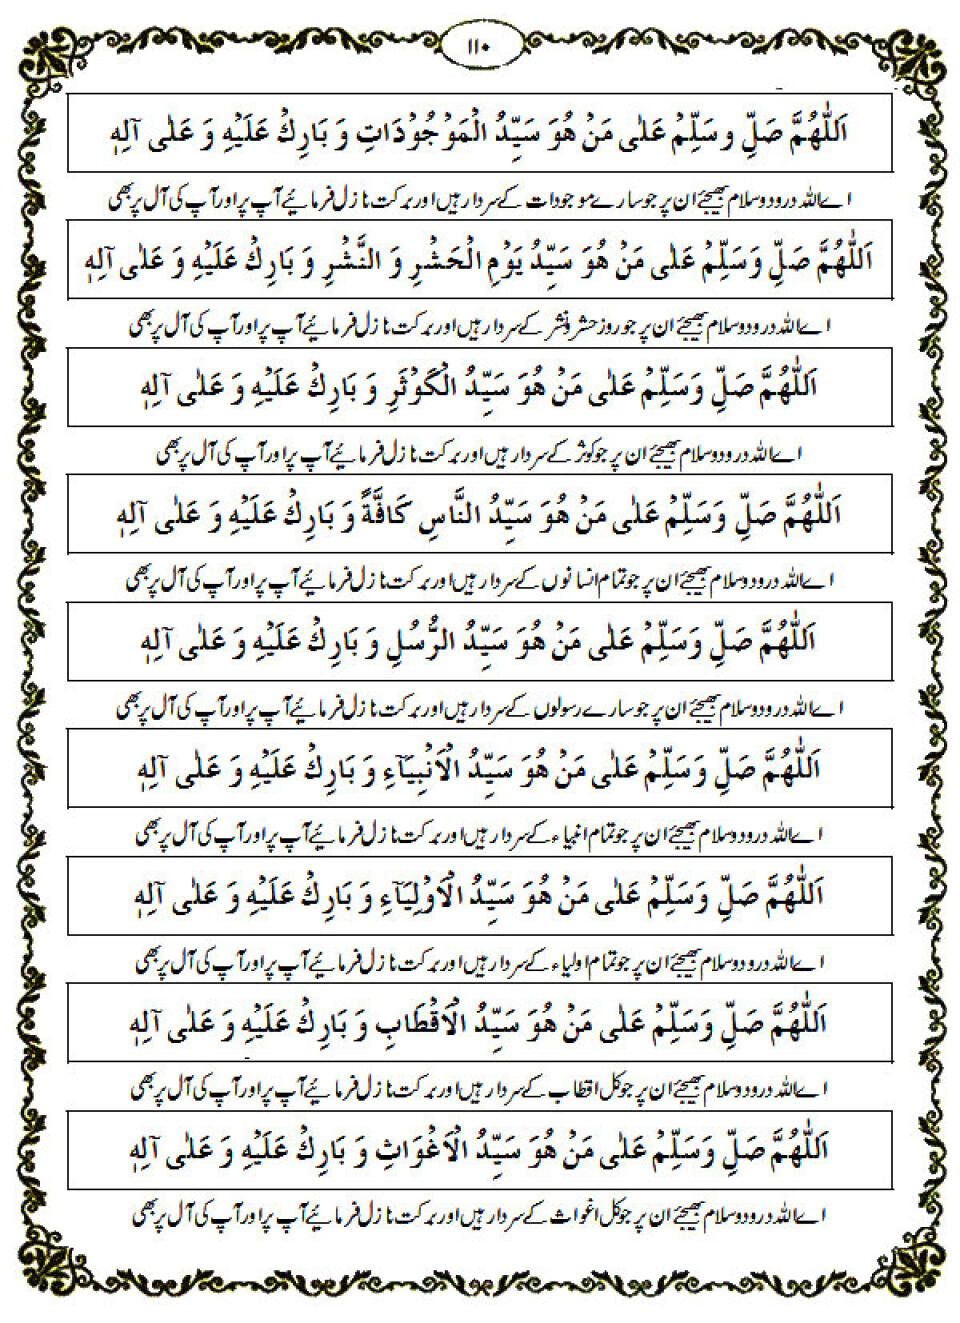 ۱۱۰
اَللّٰهُمَّ صَلِّ وسَلِّمْ عَلٰی مَنْ هُوَ سَیِّدُ الْمَوْجُوْدَاتِ وَ بَارِكْ عَلَیْهِ وَ عَلٰی آلِهٖ
اے اللہ درود وسلام بھیجئے ان پر جو سارے موجودات کے سردار ہیں اور برکت نازل فرمائیے آپ پر اور آپ کی آل پر بھی
اَللّٰهُمَّ صَلِّ وَسَلِّمْ عَلٰی مَنْ هُوَ سَیِّدُ یَوْمِ الْحَشْرِ وَ النَّشْرِ وَ بَارِكْ عَلَیْهِ وَ عَلٰی آلِهٖ
اے اللہ درود وسلام بھیجئے ان پر جو روز حشر ونشر کے سردار ہیں اور برکت نازل فرمائیے آپ پر اور آپ کی آل پر بھی
اَللّٰهُمَّ صَلِّ وَسَلِّمْ عَلٰی مَنْ هُوَ سَیِّدُ الْكَوْثَرِ وَ بَارِكْ عَلَیْهِ وَ عَلٰی آلِهٖ
اے اللہ درود وسلام بھیجئے ان پر جو کوثر کے سردار ہیں اور برکت نازل فرمائیے آپ پر اور آپ کی آل پر بھی
اَللّٰهُمَّ صَلِّ وَسَلِّمْ عَلٰی مَنْ هُوَ سَیِّدُ النَّاسِ كَافَّةً وَ بَارِكْ عَلَیْهِ وَ عَلٰی آلِهٖ
اے اللہ درود وسلام بھیجئے ان پر جو تمام انسانوں کے سردار ہیں اور برکت نازل فرمائیے آپ پر اور آپ کی آل پر بھی
اَللّٰهُمَّ صَلِّ وَسَلِّمْ عَلٰی مَنْ هُوَ سَیِّدُ الرُّسُلِ وَ بَارِكْ عَلَیْهِ وَ عَلٰی آلِهٖ
اے اللہ درود وسلام بھیجئے ان پر جو سارے رسولوں کے سردار ہیں اور برکت نازل فرمائیے آپ پر اور آپ کی آل پر بھی
اَللّٰهُمَّ صَلِّ وَسَلِّمْ عَلٰی مَنْ هُوَ سَیِّدُ الْاَنْبِیَآءِ وَ بَارِكْ عَلَیْهِ وَ عَلٰی آلِهٖ
اے اللہ درود وسلام بھیجئے ان پر جو تمام انبیاء کے سردار ہیں اور برکت نازل فرمائیے آپ پر اور آپ کی آل پر بھی
اَللّٰهُمَّ صَلِّ وَسَلِّمْ عَلٰی مَنْ هُوَ سَیِّدُ الْاَوْلِیَآءِ وَ بَارِكْ عَلَیْهِ وَ عَلٰی آلِهٖ
اے اللہ درود وسلام بھیجئے ان پر جو تمام اولیاء کے سردار ہیں اور برکت نازل فرمائیے آپ پر اور آپ کی آل پر بھی
اَللّٰهُمَّ صَلِّ وَسَلِّمْ عَلٰی مَنْ هُوَ سَیِّدُ الْاَقْطَابِ وَ بَارِكْ عَلَیْهِ وَ عَلٰی آلِهٖ
اے اللہ درود وسلام بھیجئے ان پر جو کل اقطاب کے سردار ہیں اور برکت نازل فرمائیے آپ پر اور آپ کی آل پر بھی
اَللّٰهُمَّ صَلِّ وَسَلِّمْ عَلٰی مَنْ هُوَ سَیِّدُ الْاَغْوَاثِ وَ بَارِكْ عَلَیْهِ وَ عَلٰی آلِهٖ
اے اللہ درود وسلام بھیجئے ان پر جو کل اغواث کے سردار ہیں اور برکت نازل فرمائیے آپ پر اور آپ کی آل پر بھی